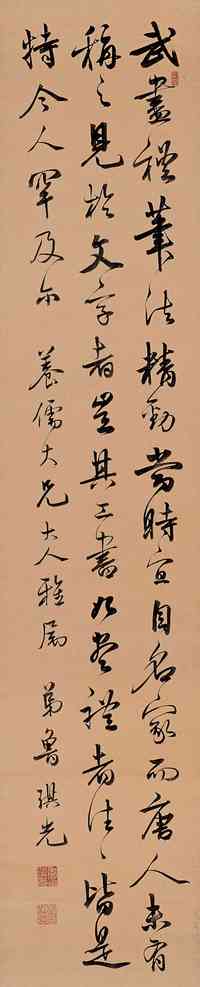 武盡禮筆法精勁當時宜自名家而唐人未有
稱之見於文字者豈其工書如盡禮者往〻皆是
特今人罕及爾
養儒大兄大人雅屬
弟魯琪光